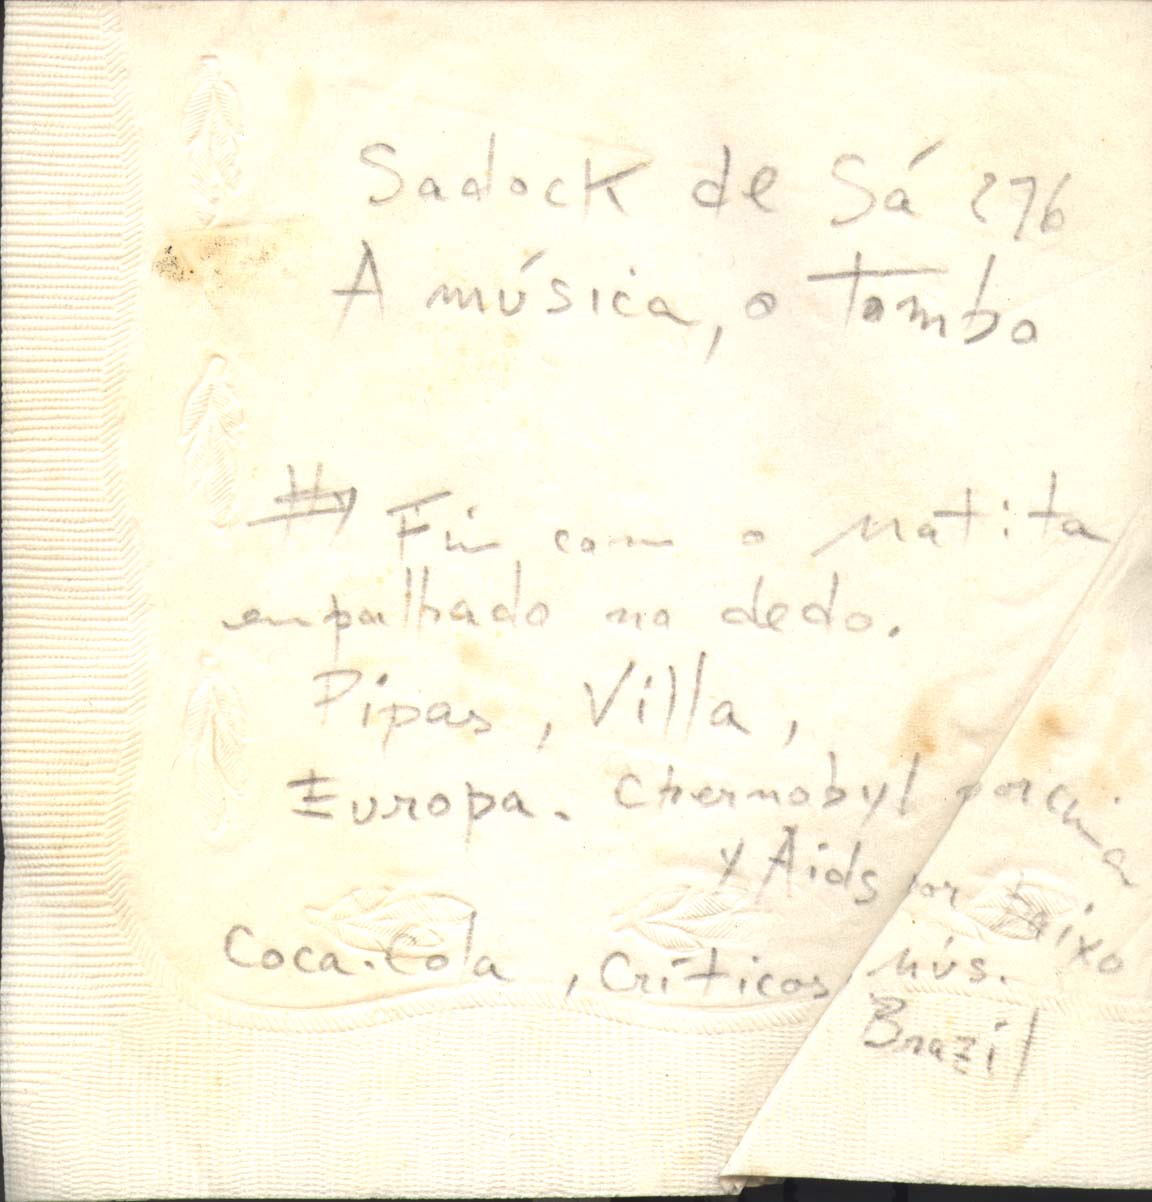 Sadock de Sá 276
A música, o tombo
Fui com o
empalhado no dedo.
Pipas, Villa,
Europa. Chernobyl por cima
y Aids por baixo
Coca.Cola, Críticos nús.
Brazil